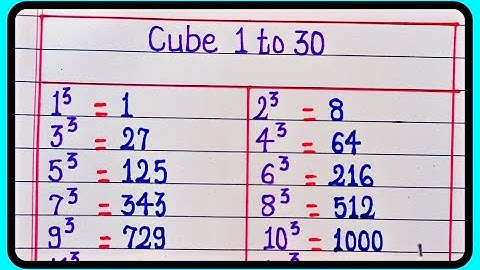 Cube 1 to 30
1³ = 1 2³ = 8
3³ = 27 4³ = 64
5³ = 125 6³ = 216
7³ = 343 8³ = 512
9³ = 729 10³ = 1000